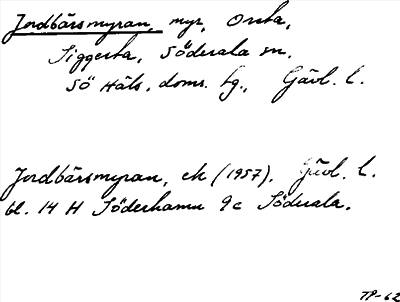 Jordbärsmyran, myr, Orsta,
Siggesta, Söderala sn.
Sö Häls. doms. tg., Gävl. l.
Jordbärsmyran, ek (1957). Gävl. l.
bl. 14 H Söderhamn 9c Söderala.
TP-62